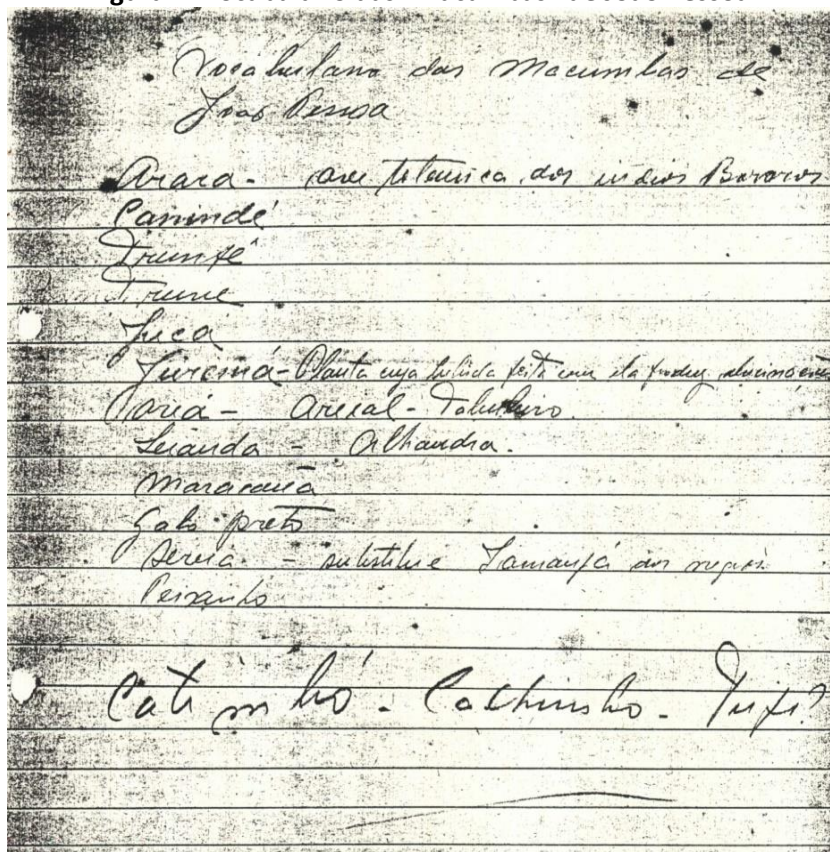 Vocabulario das Macumbas de
João Pessoa
Arara - ave totemica dos indios Bororos
Canindé
Irune
Jucá
Jurema - Planta cuja bebida feita com ela produz
Areial - Taboleiro
Luanda - Alhandra.
Maracanã
Galo preto
Sereia - substitue Iamanjá dos negros
Peixinho
Catimbó - Cachimbo -